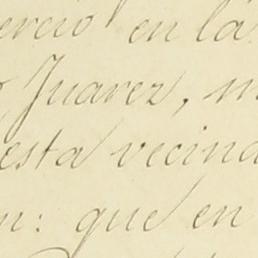 ercio en la
Juarez, m
esta vecind
n: que en